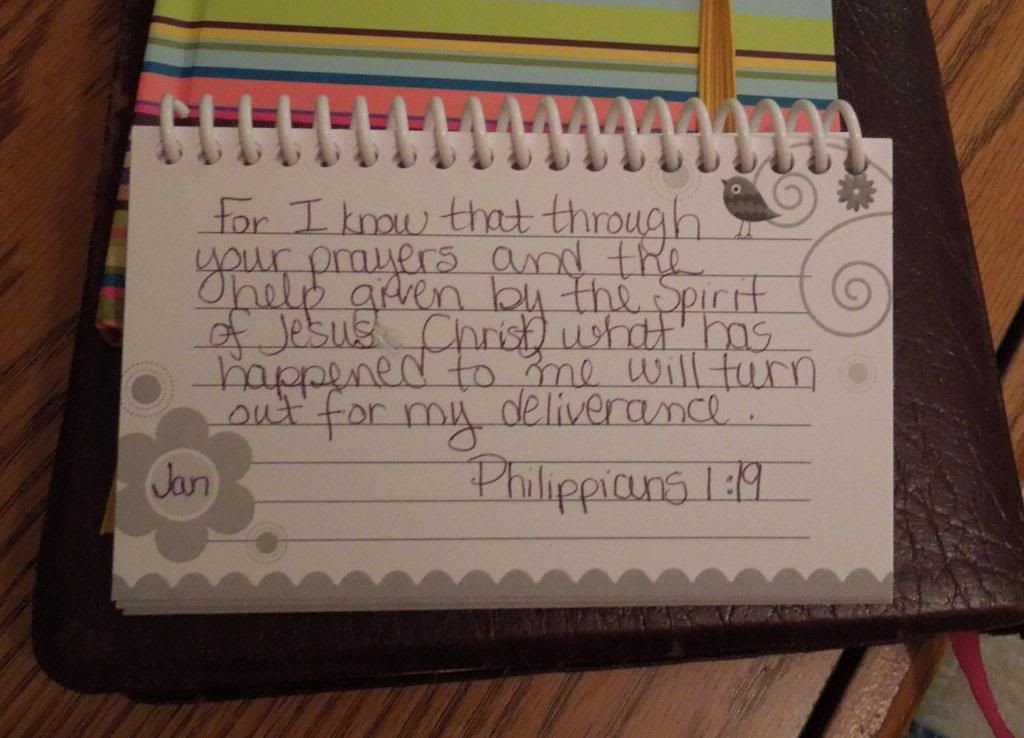 For I know that through
your prayers and the
help given by the Spirit
of Jesus Christ, what has
happened to me will turn
out for my deliverance.
Philippians 1:19
Jan